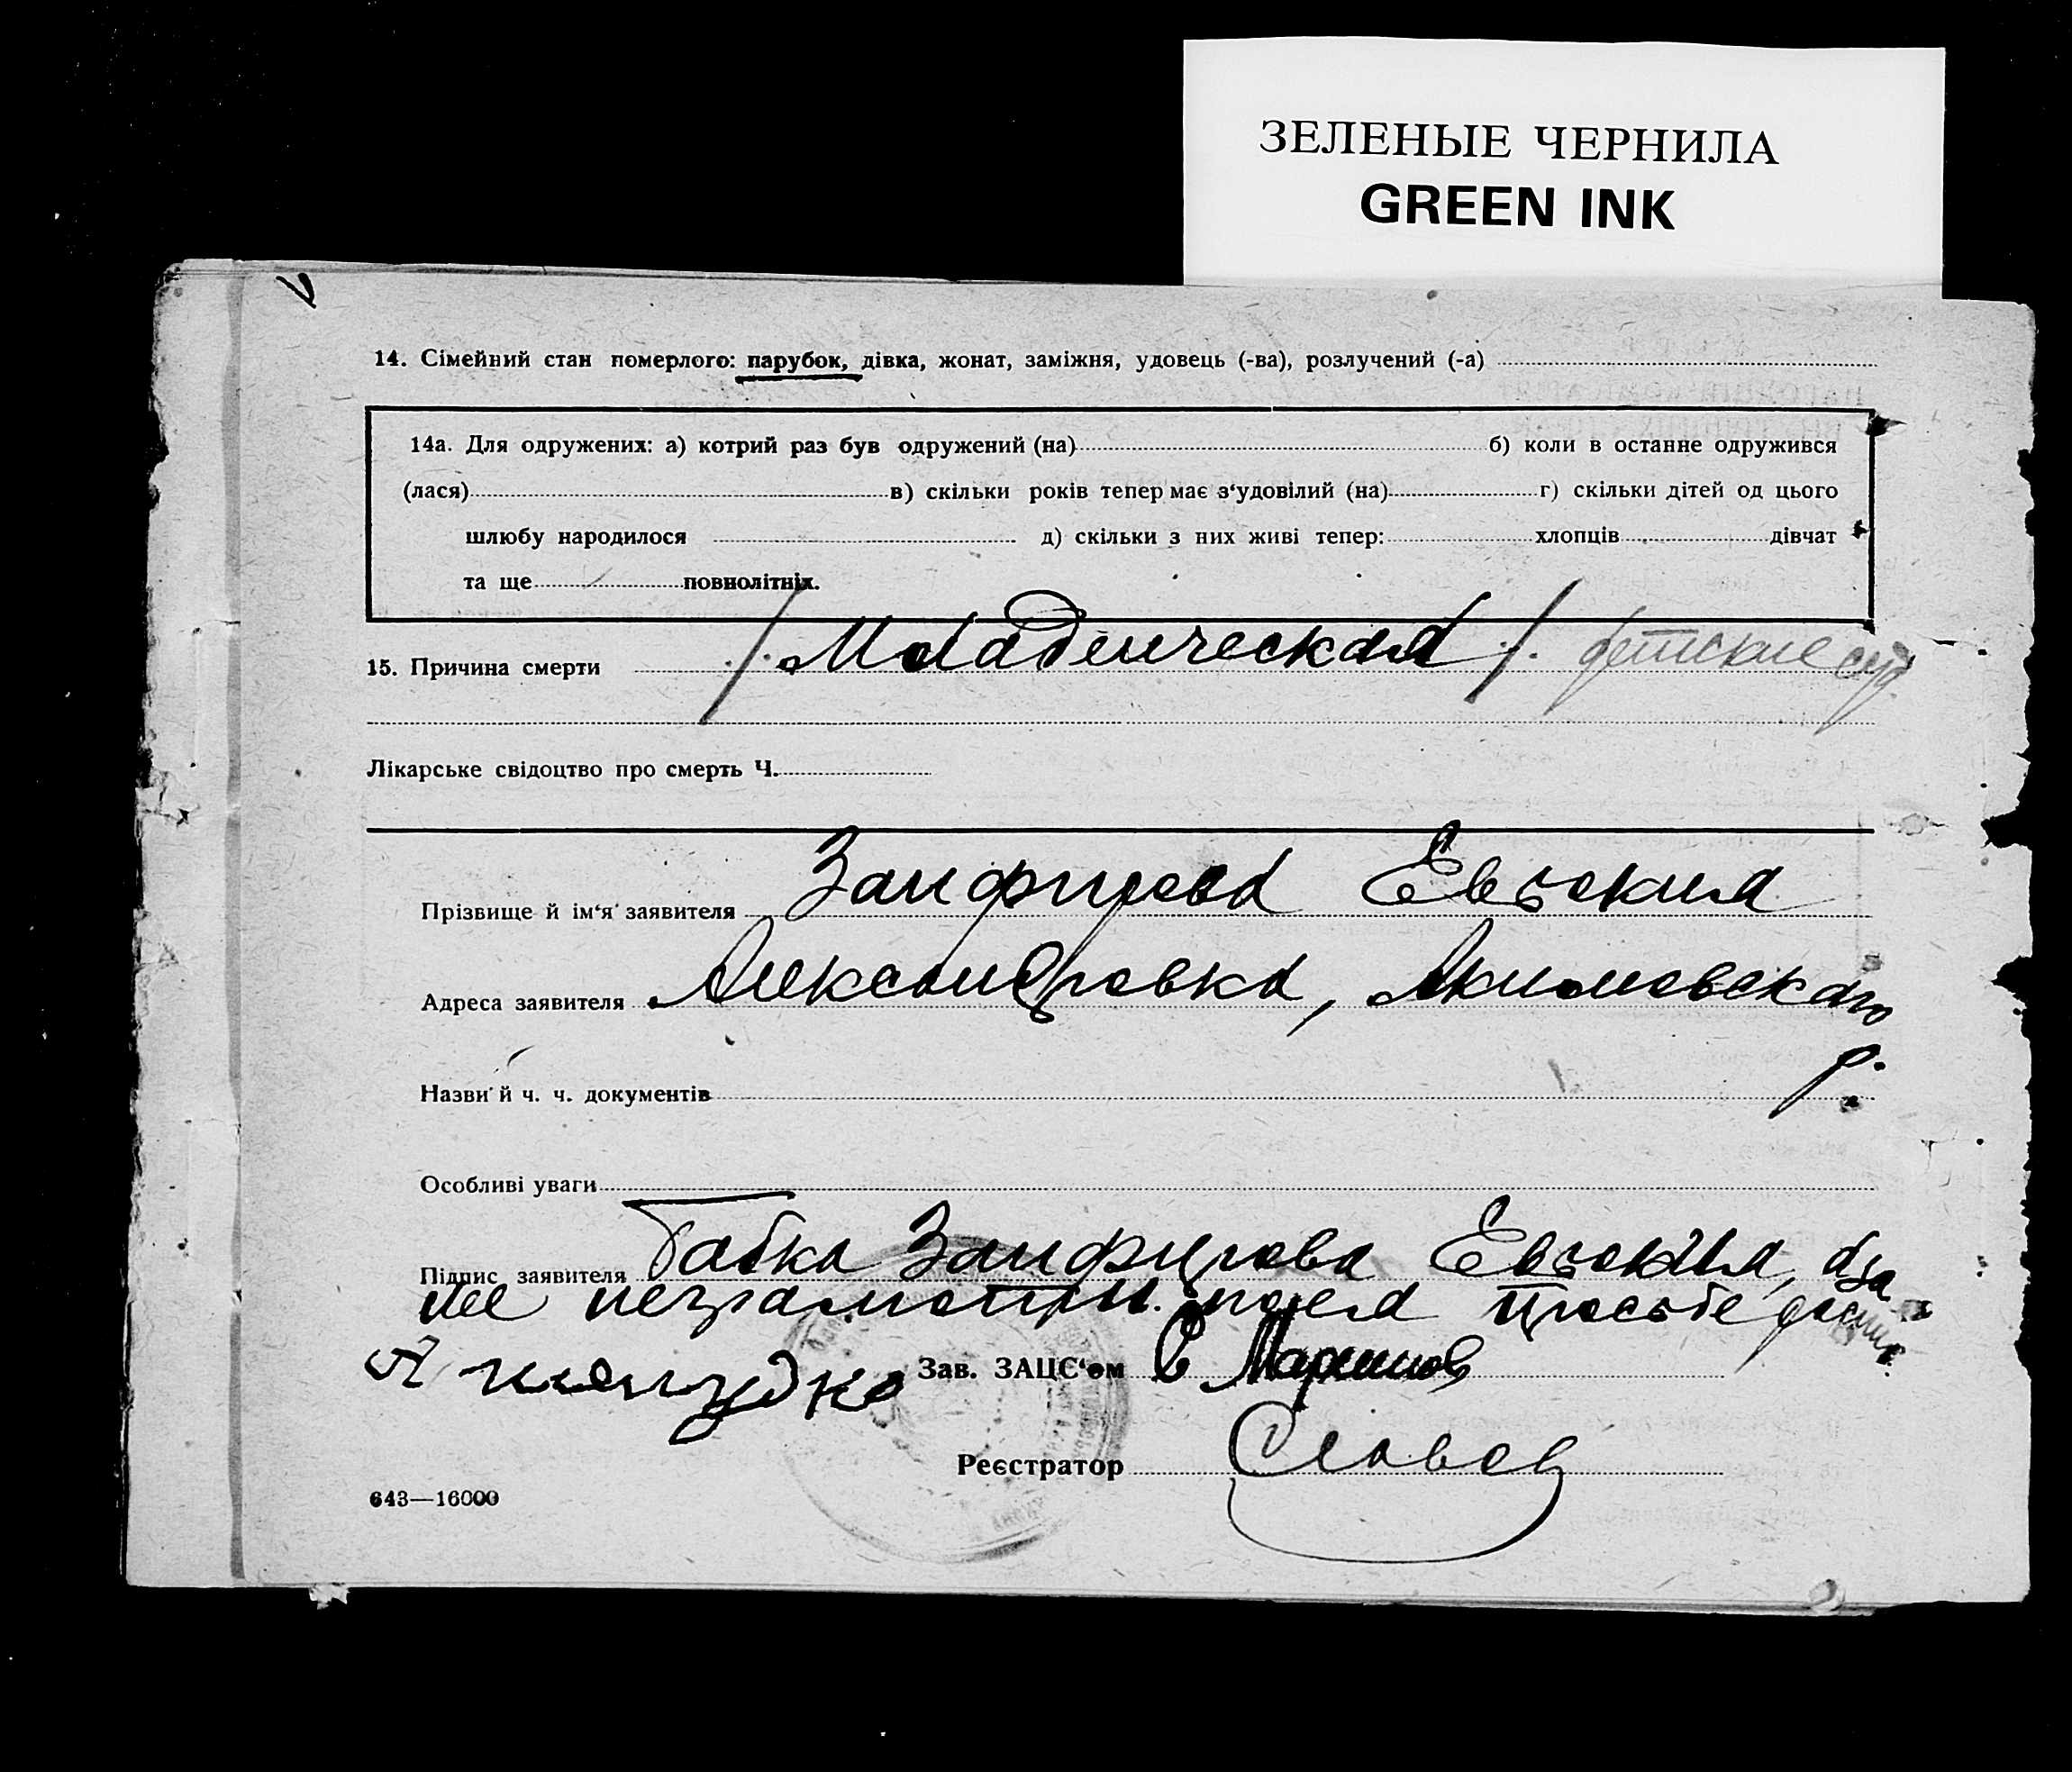 ЗЕЛЕНЫЕ ЧЕРНИЛА
GREEN INK
14. Сімейний стан померлого: парубок, дівка, жонат, заміжня, удовець (-ва), розлучений (-а)
14а. Для одружених: а) котрий раз був одружений (на) б) коли в останне одружився
(лася) в) скільки років тепер має з‘удовілий (на) г) скільки дітей од цього
шлюбу народилося д) скільки з них живі тепер: хлопців дівчат
та ще повнолітніх.
15. Причина смерти /Младенческая/ детские суд.
Лікарське свідоцтво про смерть Ч.
Прізвище й ім‘я заявителя Занфирова Евдокия
Адреса заявителя Александровка, Акимовского
р.
Назви й ч. ч. документів
Особливі уваги
Підпис заявителя Бабка Занфирова Евдокия, а за
нее неграмотны. по ея просьбе
Зав. ЗАЦС‘ом
Реєстратор
643—16000